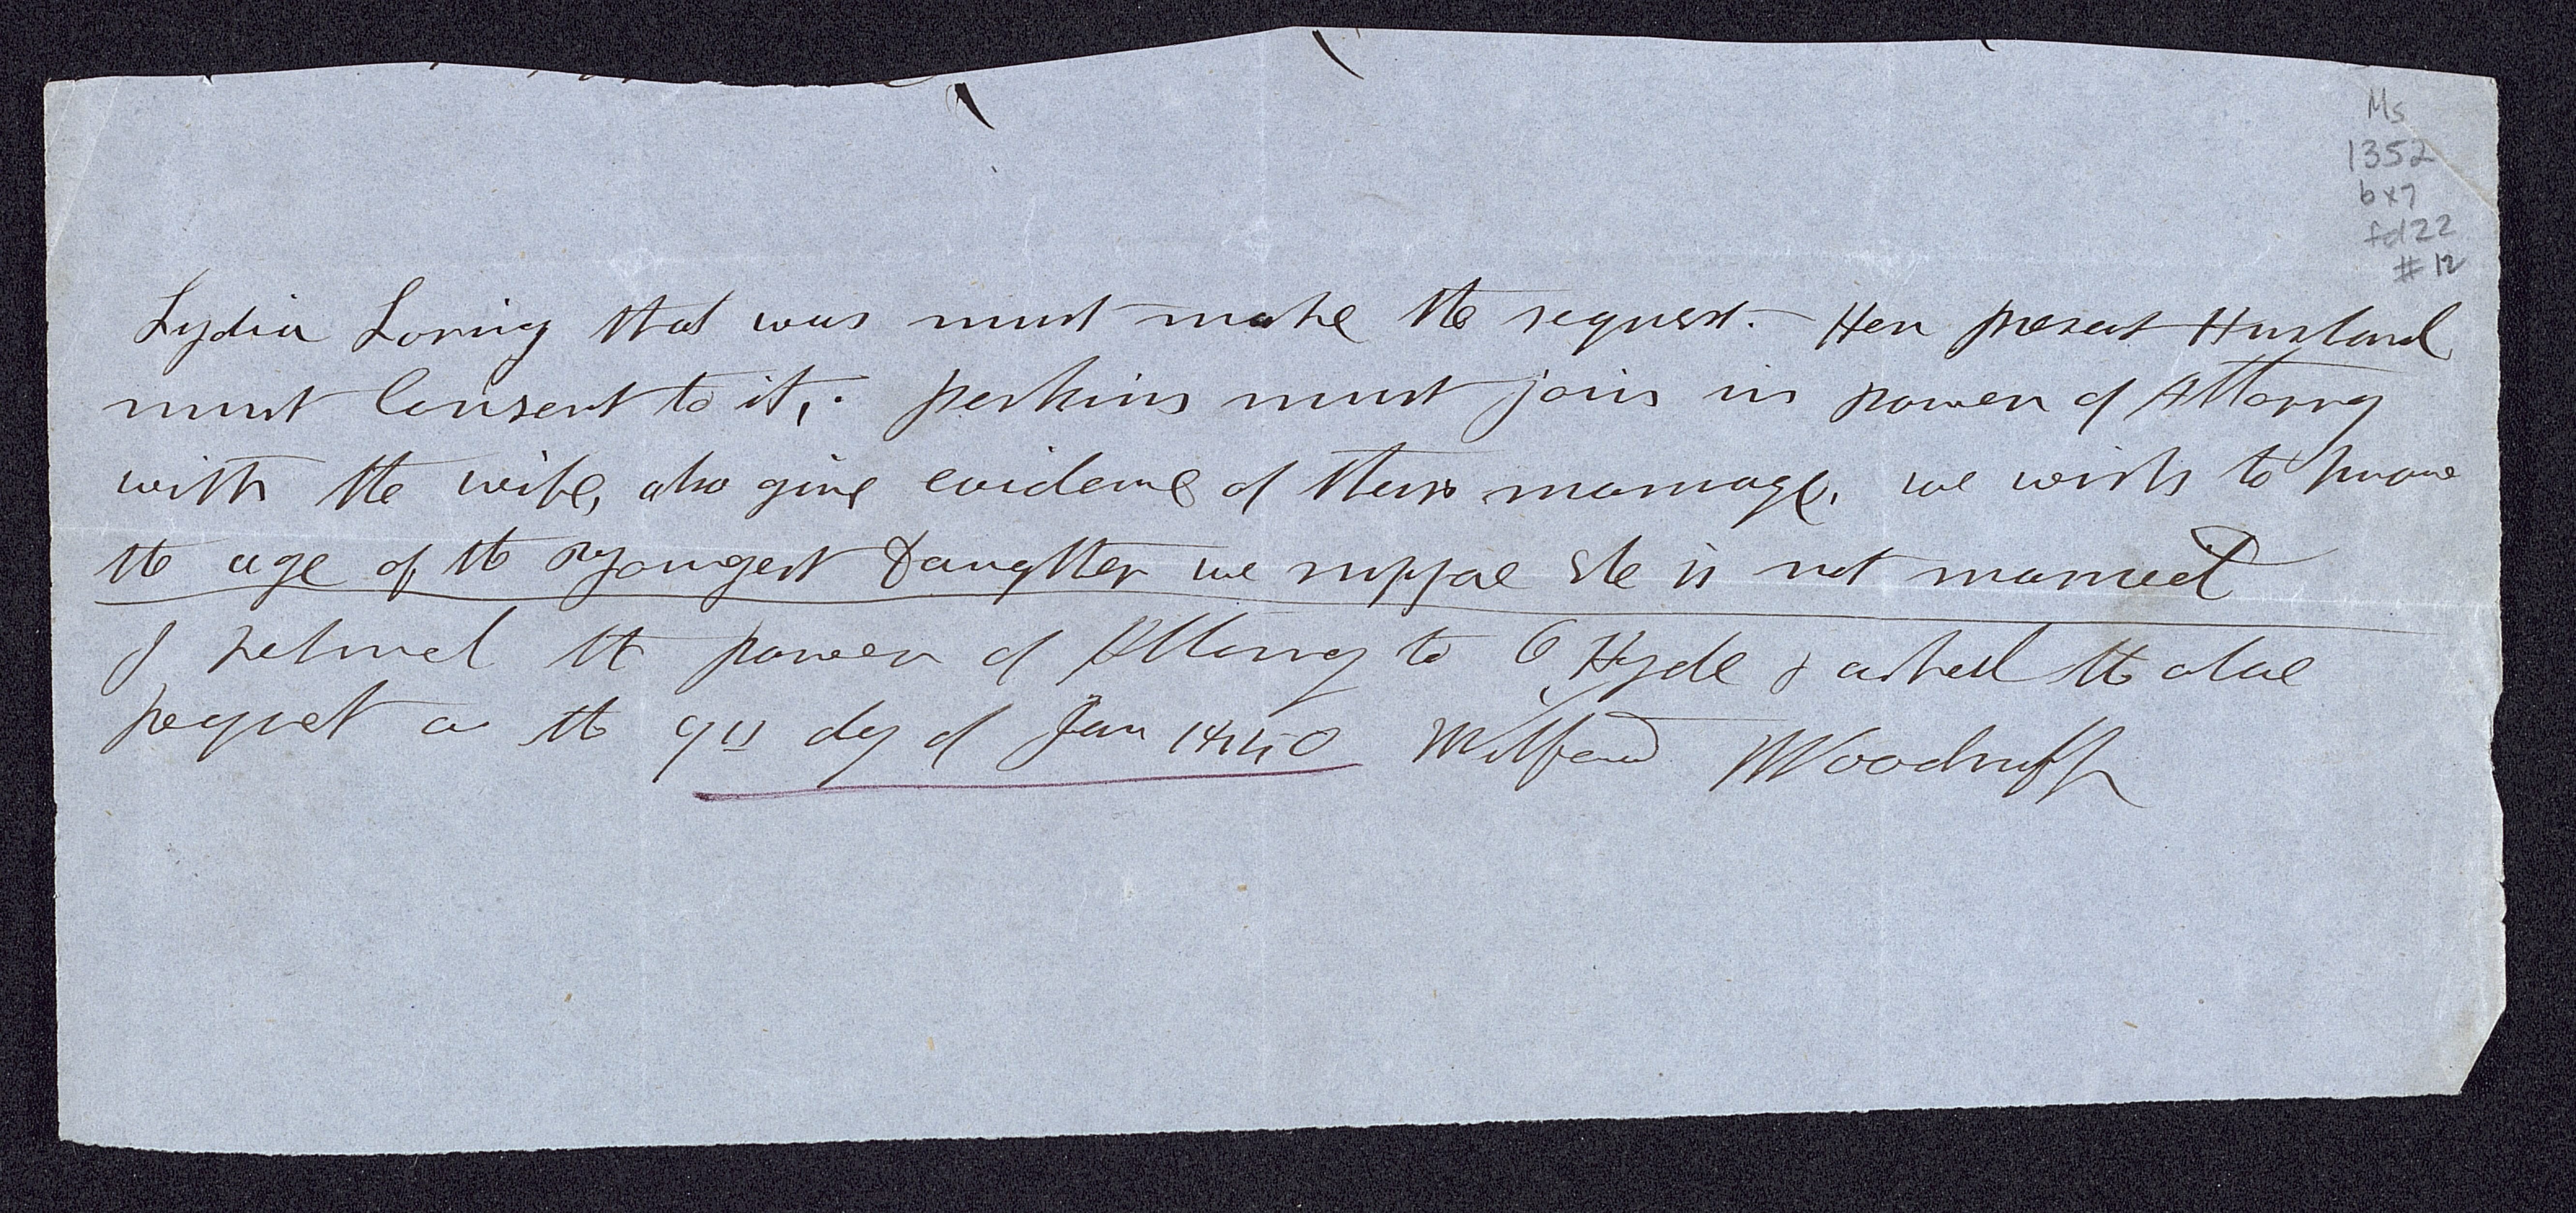 Ms
1352
bx7
fd22
#12
Lydia Loring that was must make the request. Her present Husband
must Consent to it,. perkins must join in power of Attorney
with the wife, also give evidence of their marriage. we wish to prove
the age of the yongest Daughter we suppose She is not married
I retured the power of Attorney to O Hyde & asked the above
request on the 9th day of Jan 1850 Wilford Woodruff